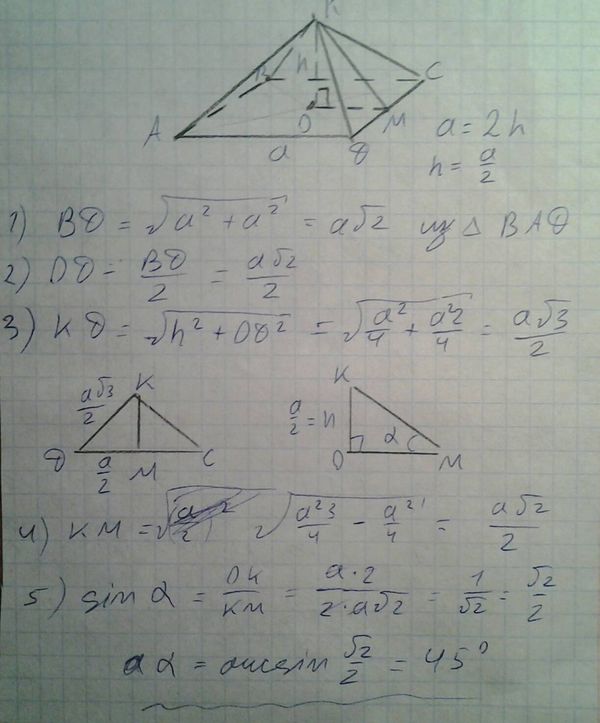 K
B h C
A O M
a D
a = 2h
h = a/2
1) BD = √(a² + a²) = a√2 из △ BAD
2) OD = BD/2 = a√2/2
3) KD = √(h² + OD²) = √(a²/4 + a²2/4) = a√3/2
a√3/2 K
D a/2 M C
K
a/2 = h α
O M
4) KM = √(a²3/4 - a²/4) = a√2/2
5) sin α = OK/KM = a·2/2·a√2 = 1/√2 = √2/2
α = arcsin √2/2 = 45°